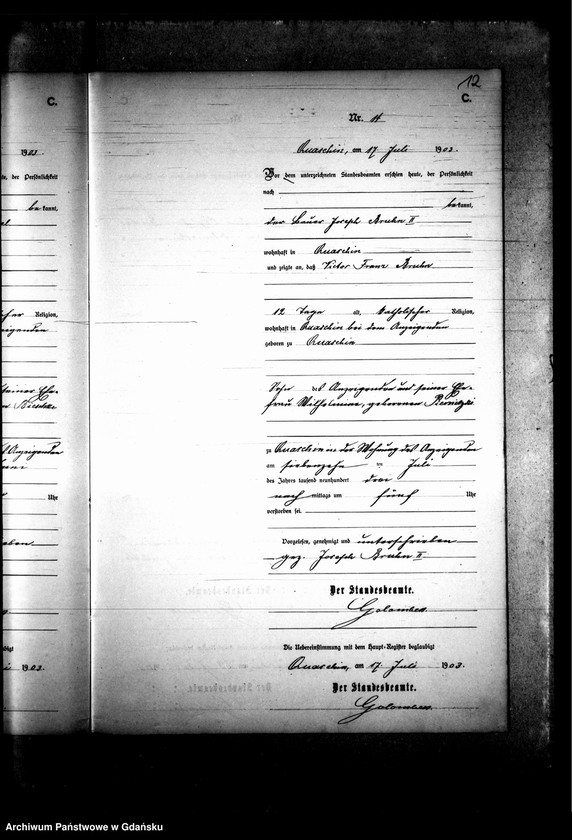 C.
1903
te, der Persönlichkeit
be kannt,
Religion,
Uhr
1903.
12
C.
Nr. 11
Quaschin, am 17 Juli 1903.
Vor dem unterzeichneten Standesbeamten erschien heute, der Persönlichkeit
nach
be kannt,
der Bauer Joseph Bruhn II
wohnhaft in Quaschin
und zeigte an, daß Victor Franz Bruhn
12 Tage alt, katholischer Religion,
wohnhaft in Quaschin bei dem Anzeigenden
geboren zu Quaschin
Sohn des Anzeigenden und seiner Ehe-
frau Wilhelmine, geborenen
zu Quaschin in der Wohnung des Anzeigenden
am siebenzehn ten Juli
des Jahres tausend neunhundert drei
nach mittags um fünf Uhr
verstorben sei.
Vorgelesen, genehmigt und unterschrieben
gez. Joseph Bruhn II.
Der Standesbeamte.
Golombek
Die Uebereinstimmung mit dem Haupt-Register beglaubigt
Quaschin, am 17 Juli 1903.
Der Standesbeamte.
Golombek
Archiwum Państwowe w Gdańsku